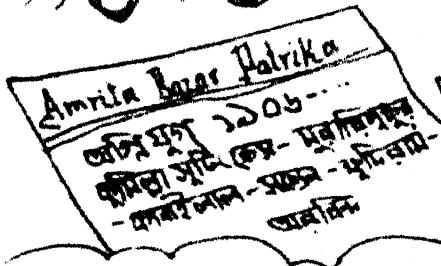 Amrita Bazar Patrika
অগ্নিযুগ ১৯০৮-...
কুমিল্লা সুটিং কেস - মুরারিপুকুর
- কানাইলাল - সত্যেন - ক্ষুদিরাম -
অরবিন্দ